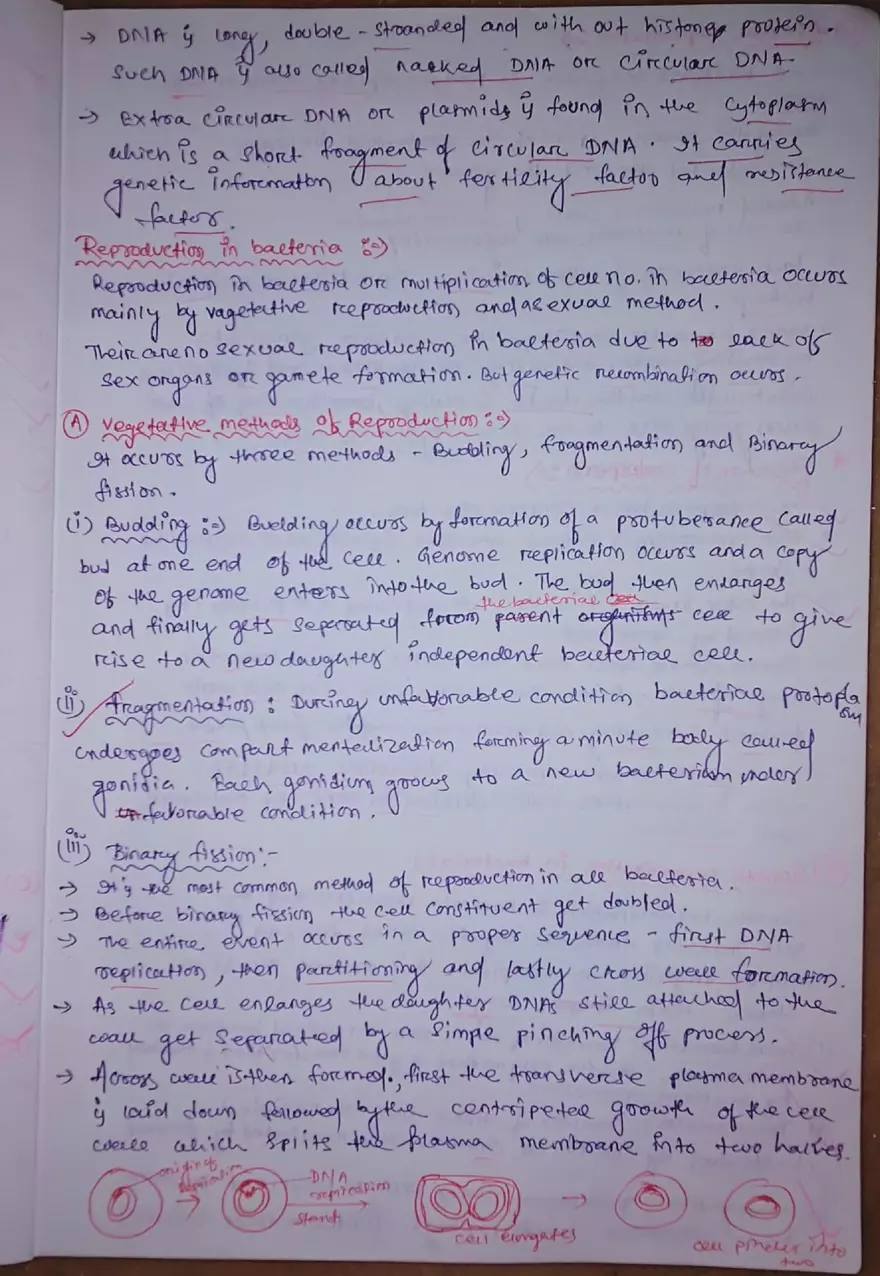 → DNA is long, double - stranded and with out histone protein.
Such DNA is also called nacked DNA or circular DNA.
→ Extra circular DNA or plasmids is found in the cytoplasm
which is a short fragment of circular DNA. It carries
genetic information about fertility factor and resistance
factor.
Reproduction in bacteria :⇒
Reproduction in bacteria or multiplication of cell no. in bacteria occurs
mainly by vagetative reproduction and asexual method.
Their are no sexual reproduction in bacteria due to to lack of
sex organs or gamete formation. But genetic recombination occurs.
(A) Vegetative methods of Reproduction :⇒
It occurs by three methods - Budding, fragmentation and Binary
fission.
(i) Budding :⇒ Budding occurs by formation of a protuberance called
bud at one end of the cell. Genome replication occurs and a copy
of the genome enters into the bud. The bud then enlarges
the bacterial cell
and finally gets seperated from parent organisms cell to give
rise to a new daughter independent bacterial cell.
(ii) Fragmentation : During unfavorable condition bacterial protoplasm
undergoes compartmentalization forming a minute body called
gonidia. Each gonidium grows to a new bacterium under
favorable condition.
(iii) Binary fission :-
→ It's the most common method of reproduction in all bacteria.
→ Before binary fission the cell constituent get doubled.
→ The entire event occurs in a proper sequence - first DNA
replication, then partitioning and lastly cross wall formation.
→ As the cell enlarges the daughter DNAs still attached to the
wall get separated by a simpe pinching off process.
→ A cross wall is then formed., first the transverse plasma membrane
is laid down followed by the centripetal growth of the cell
wall which splits the plasma membrane into two halves.
origin of replication
DNA replication
starts
cell elongates
cell pinches into two